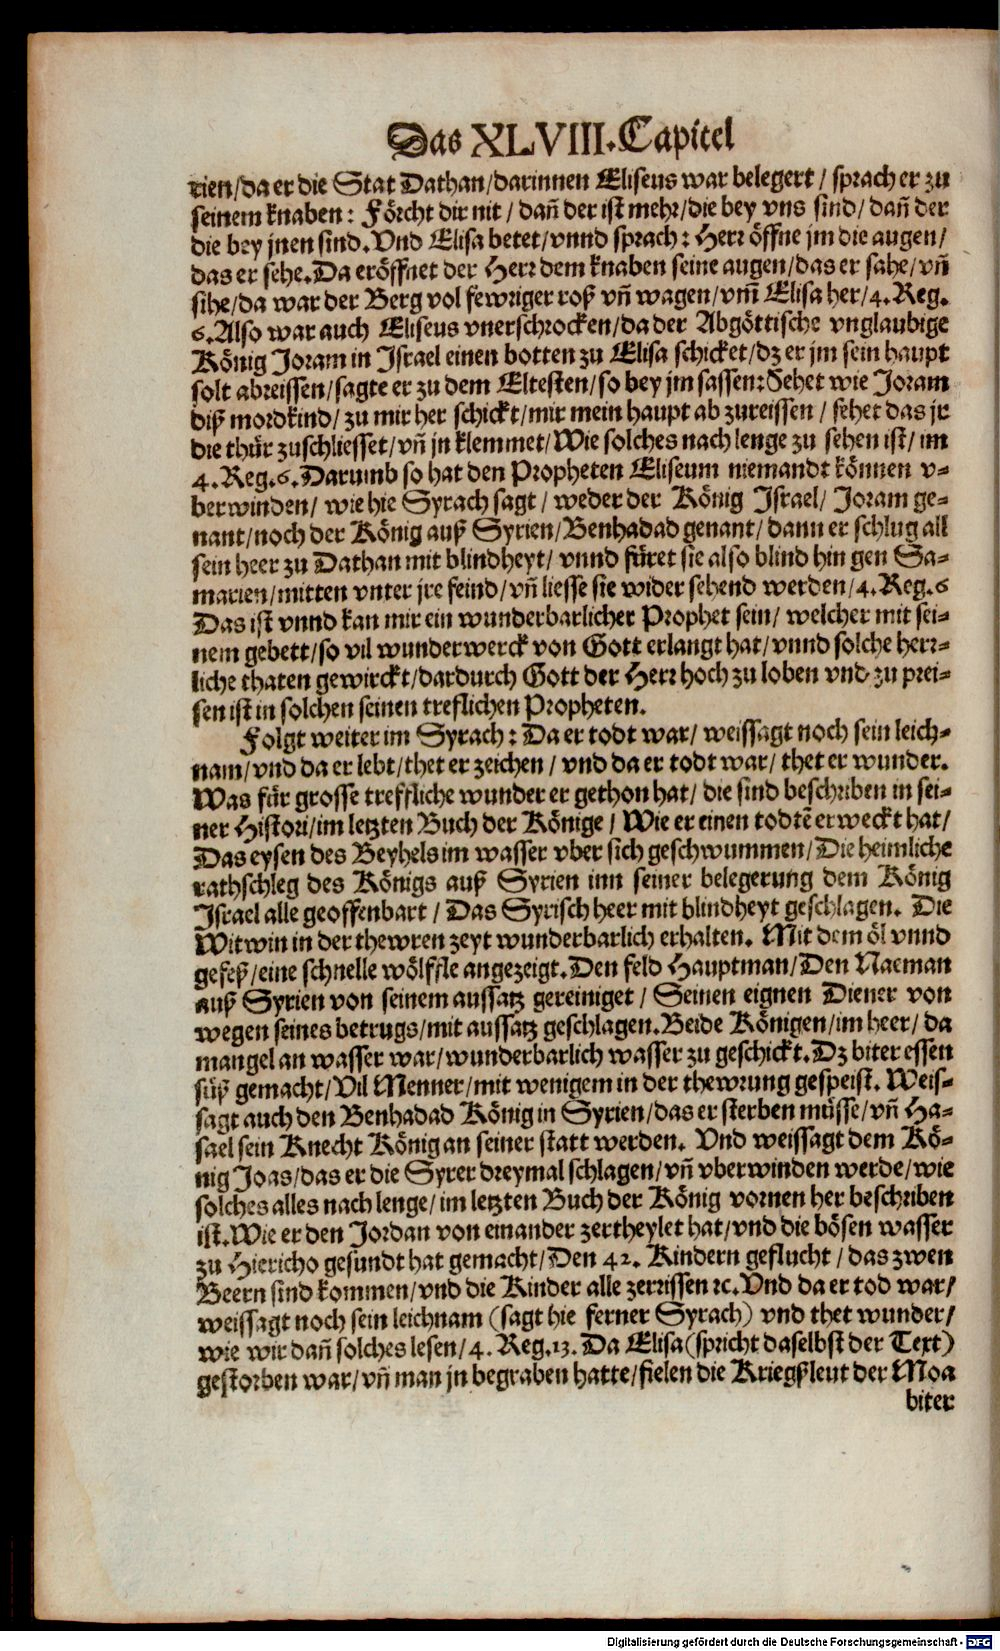 Das XLVIII. Capitel
rien/da er die Stat Dathan/darinnen Eliseus war belegert / sprach er zu
seinem knaben: Förcht dir nit / dañ der ist mehr/die bey vns sind/dañ der
die bey jnen sind. Vnd Elisa betet/vnnd sprach: Herr öffne jm die augen/
das er sehe. Da eröffnet der Herr dem knaben seine augen/das er sahe/vñ
sihe/da war der Berg vol fewriger roß vñ wagen/vm̃ Elisa her/4. Reg.
6. Also war auch Eliseus vnerschrocken/da der Abgöttische vnglaubige
König Joram in Israel einen botten zu Elisa schicket/dz er jm sein haupt
solt abreissen/sagte er zu dem Eltesten/so bey jm sassen: Sehet wie Joram
diß mordkind/zu mir her schickt/mir mein haupt ab zureissen / sehet das jr
die thür zuschliesset/vñ jn klemmet/Wie solches nach lenge zu sehen ist/im
4. Reg. 6. Darumb so hat den Propheten Eliseum niemandt können v-
berwinden/ wie hie Syrach sagt / weder der König Israel/ Joram ge-
nant/noch der König auß Syrien/Benhadad genant/dann er schlug all
sein heer zu Dathan mit blindheyt/ vnnd füret sie also blind hin gen Sa-
marien/mitten vnter jre feind/vñ liesse sie wider sehend werden/4. Reg. 6
Das ist vnnd kan mir ein wunderbarlicher Prophet sein/ welcher mit sei-
nem gebett/so vil wunderwerck von Gott erlangt hat/vnnd solche herr-
liche thaten gewirckt/dardurch Gott der Herr hoch zu loben vnd zu prei-
sen ist in solchen seinen treflichen Propheten.
Folgt weiter im Syrach: Da er todt war/ weissagt noch sein leich-
nam/vnd da er lebt/thet er zeichen / vnd da er todt war/ thet er wunder.
Was für grosse treffliche wunder er gethon hat/ die sind beschriben in sei-
ner Histori/im letzten Buch der Könige / Wie er einen todtẽ erweckt hat/
Das eysen des Beyhels im wasser vber sich geschwummen/Die heimliche
rathschleg des Königs auß Syrien inn seiner belegerung dem König
Israel alle geoffenbart / Das Syrisch heer mit blindheyt geschlagen. Die
Witwin in der thewren zeyt wunderbarlich erhalten. Mit dem öl vnnd
gefeß/eine schnelle wölffle angezeigt. Den feld Hauptman/Den Naeman
auß Syrien von seinem aussatz gereiniget / Seinen eignen Diener von
wegen seines betrugs/mit aussatz geschlagen. Beide Königen/im heer/ da
mangel an wasser war/wunderbarlich wasser zu geschickt. Dz biter essen
süß gemacht/Vil Menner/mit wenigem in der thewrung gespeist. Weis-
sagt auch den Benhadad König in Syrien/das er sterben müsse/vñ Ha-
sael sein Knecht König an seiner statt werden. Vnd weissagt dem Kö-
nig Joas/das er die Syrer dreymal schlagen/vñ vberwinden werde/wie
solches alles nach lenge/im letzten Buch der König vornen her beschriben
ist. Wie er den Jordan von einander zertheylet hat/vnd die bösen wasser
zu Hiericho gesundt hat gemacht/Den 42. Kindern geflucht / das zwen
Beern sind kommen/vnd die Kinder alle zerrissen ꝛc. Vnd da er tod war/
weissagt noch sein leichnam (sagt hie ferner Syrach) vnd thet wunder/
wie wir dañ solches lesen/4. Reg. 13. Da Elisa (spricht daselbst der Text)
gestorben war/vñ man jn begraben hatte/fielen die Kriegßleut der Moa
biter
Digitalisierung gefördert durch die Deutsche Forschungsgemeinschaft - DFG